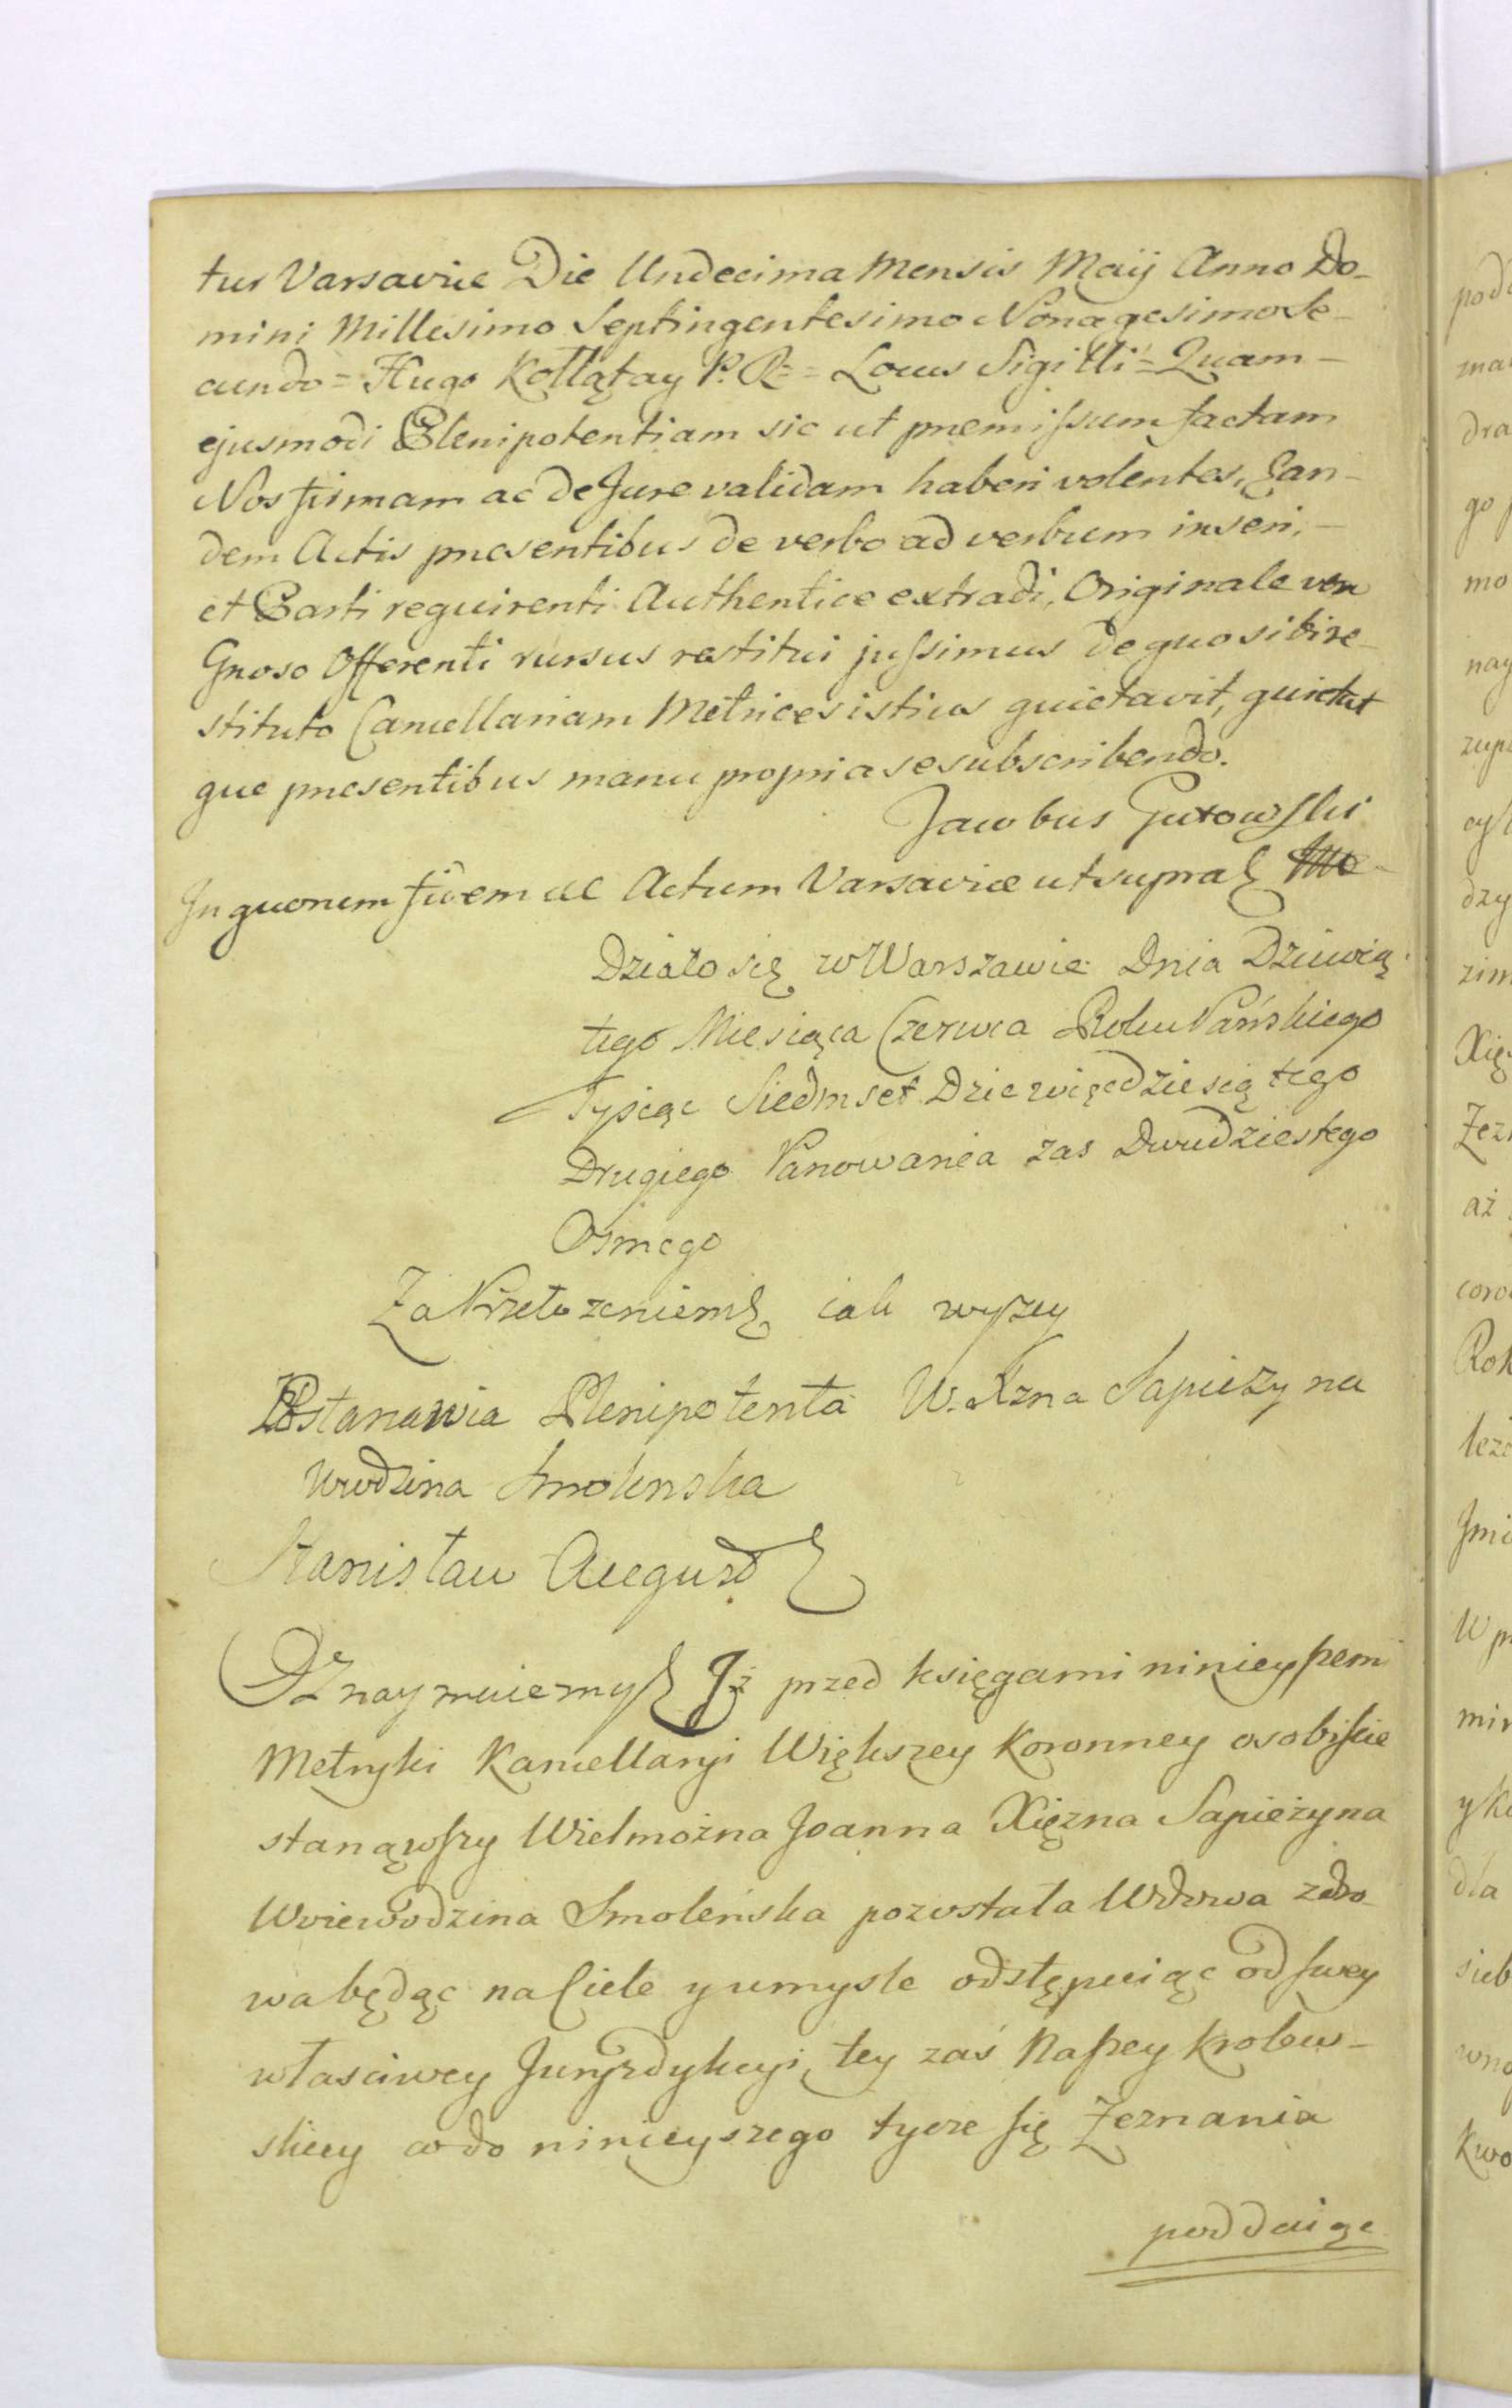 tur Varsaviæ Die Undecima Mensis Maij Anno Do-
mini Millesimo Septingentesimo Nonagesimo Se-
cundo = Hugo Kołłątay P. R. = Locus Sigilli = Quam-
ejusmodi Plenipotentiam sic ut præmissum factam
Nos firmam ac de Jure validam haberi volentes, Ean-
dem Actis præsentibus de verbo ad verbum inseri, -
et Parti requirenti Authentice extradi, Originale vero
Gnoso Offerenti rursus restitui jussimus de quo sibi re-
stituto Cancellariam Metrices istius quietavit, quietat
que præsentibus manu propria se subscribendo.
Jacobus Gutowski
In quorum fidem etc Actum Varsaviæ ut supra
Działo się w Warszawie Dnia Dziewią-
tego Miesiąca Czerwca Roku Pańskiego
Tysiąc Siedmset Dziewięcdziesiątego
Drugiego Panowania zas Dwudziestego
Osmego
Za Przełozeniem iak wyszey
Postanawia Plenipotenta W. Xzna Sapieżyna
Wwdzina Smolenska
Stanisław August
Oznaymuiemy Iż przed księgami ninieyszemi
Metryki Kancellaryi Większey Koronney osobiście
stanąwszy Wielmożna Joanna Xięzna Sapieżyna
Woiewodzina Smoleńska pozostała Wdowa zdro-
wa będąc na Ciele y umysle odstępuiąc od swey
własciwey Juryzdykcyi, tey zaś Naszey Krolew-
skiey co do ninieyszego tycze się Zeznania
poddaiąc